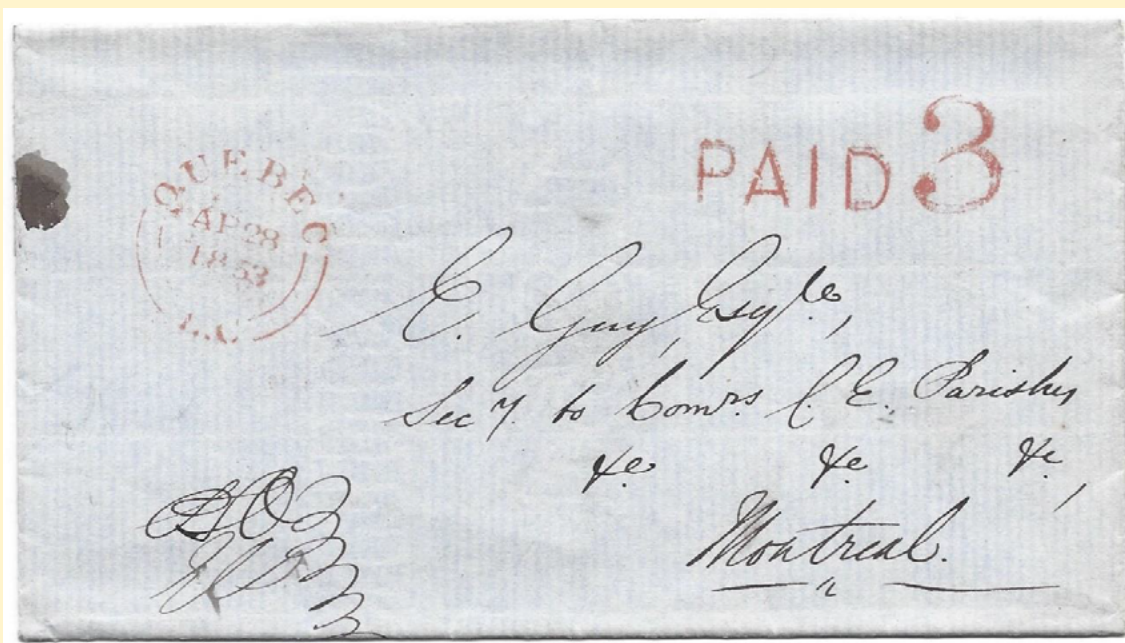 QUEBEC
AP 28
1853
L.C.
PAID 3
E. Guy, Esqre,
Secy to Comrs C E. Parishes
&c &c &c,
Montreal.